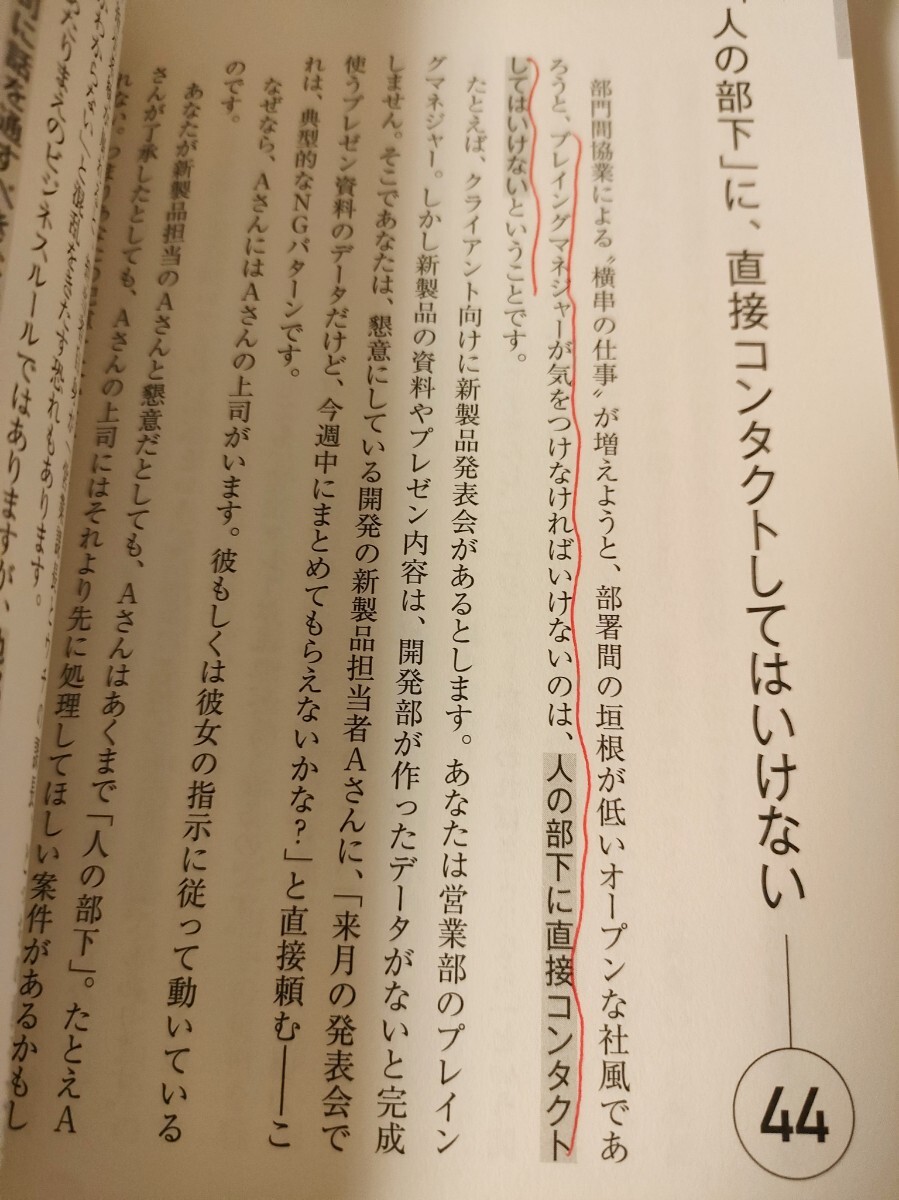 「人の部下」に、直接コンタクトしてはいけない
44
部門間協業による〝横串の仕事〟が増えようと、部署間の垣根が低いオープンな社風であ
ろうと、プレイングマネジャーが気をつけなければいけないのは、人の部下に直接コンタクト
してはいけないということです。
たとえば、クライアント向けに新製品発表会があるとします。あなたは営業部のプレイン
グマネジャー。しかし新製品の資料やプレゼン内容は、開発部が作ったデータがないと完成
しません。そこであなたは、懇意にしている開発の新製品担当者Aさんに、「来月の発表会で
使うプレゼン資料のデータだけど、今週中にまとめてもらえないかな?」と直接頼む――こ
れは、典型的なNGパターンです。
なぜなら、AさんにはAさんの上司がいます。彼もしくは彼女の指示に従って動いている
のです。
あなたが新製品担当のAさんと懇意だとしても、Aさんはあくまで「人の部下」。たとえA
さんが了承したとしても、Aさんの上司にはそれより先に処理してほしい案件があるかもし
れない。つまりあなたの
恐れもあります。
ビジネスルールではありますが、